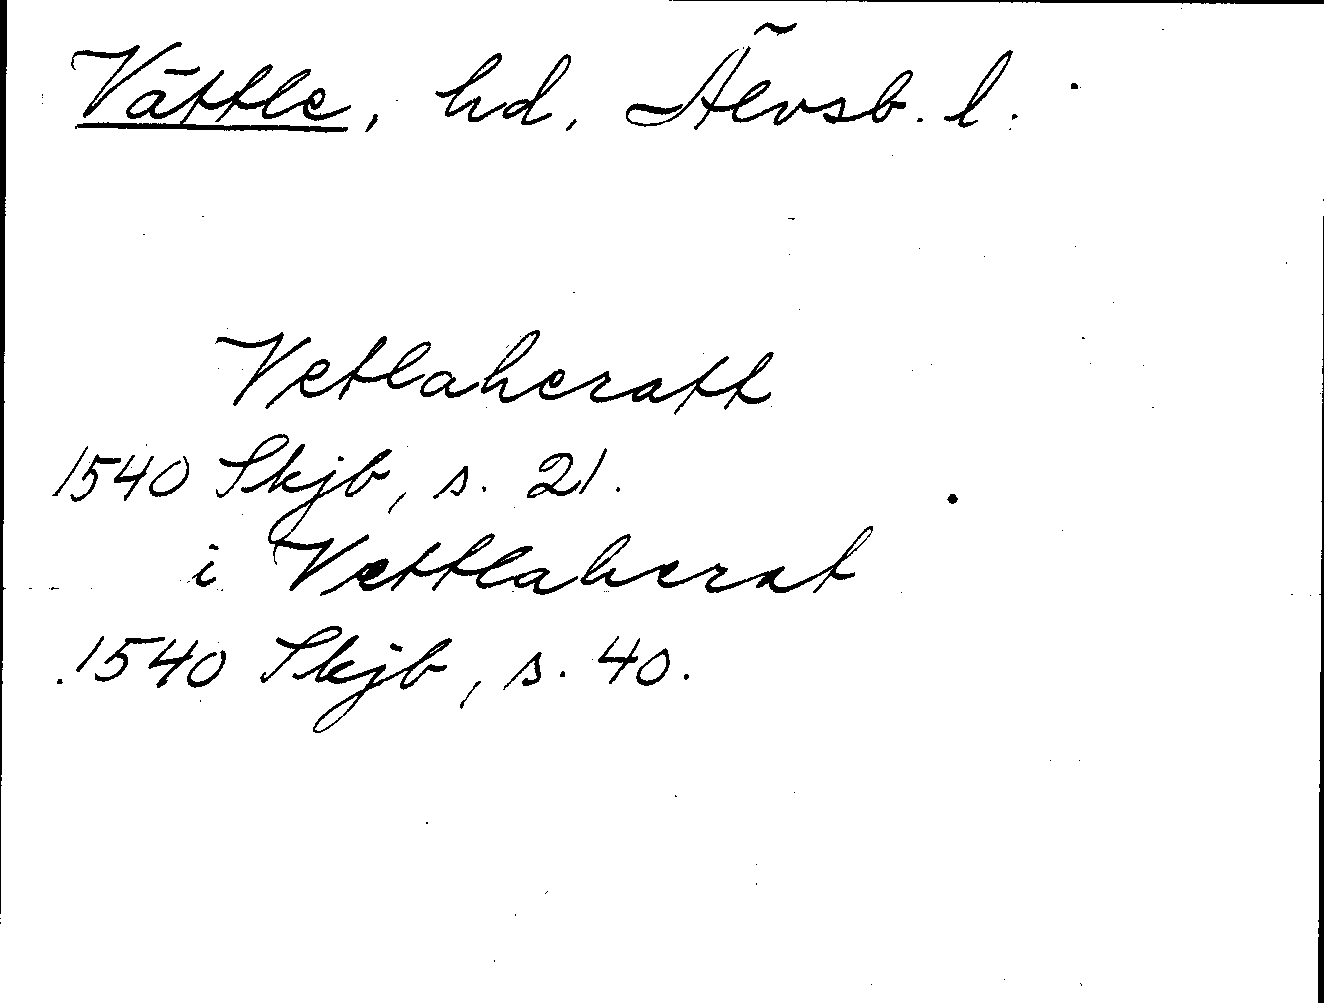 Vättle, hd, Älvsb. l.
Vetlaheratt
1540 Skjb, s. 21.
i Vettlaherat
1540 Skjb, s. 40.